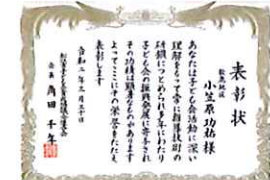 表彰状
小笠原功祐様
あなたは子ども会活動に深い
理解をもって常に指導技術の
研鑽につとめられ多年にわたり
子ども会の振興発展に寄与され
その功績は顕著なものがあります
よってここにその栄誉をたたえ
表彰します
令和二年三月三十日
会長